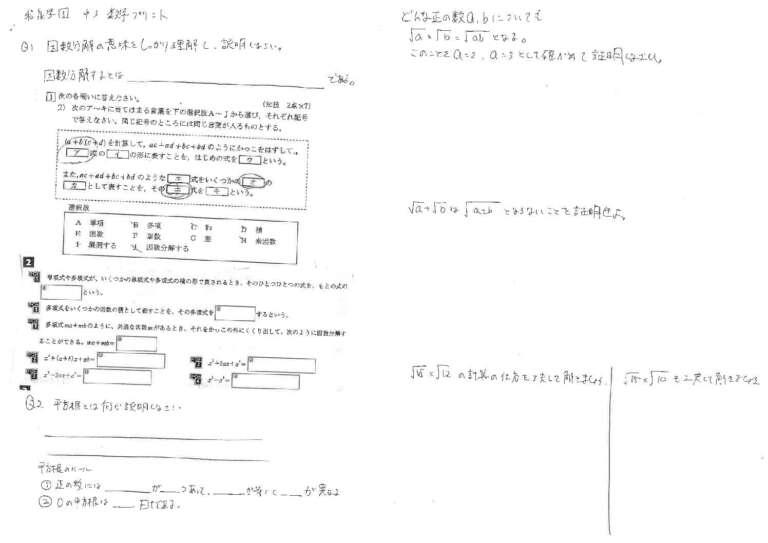 中3 数学プリント
Q1 因数分解の意味をしっかり理解し、説明しなさい。
因数分解するとは である。
1 次の各問いに答えなさい。
2) 次のア〜キに当てはまる言葉を下の選択肢A〜Jから選び、それぞれ記号
で答えなさい。同じ記号のところには同じ言葉が入るものとする。
(a+b)(c+d)を計算して、ac+ad+bc+bdのようにかっこをはずして、
ア 式の イ の形に表すことを、はじめの式を ウ という。
また、ac+ad+bc+bdのような エ 式をいくつかの オ の
カ として表すことを、その エ 式を キ という。
選択肢
A 単項 B 多項 C 和 D 積
E 因数 F 素数 G 差 H 素因数
I 展開する J 因数分解する
2
単項式や多項式が、いくつかの単項式や多項式の積の形で表されるとき、そのひとつひとつの式を、もとの式の
という。
多項式をいくつかの因数の積として表すことを、その多項式を するという。
多項式ma+mbのように、共通な因数mがあるとき、それをかっこの外にくくり出して、次のように因数分解す
ることができる。ma+mb=
x²+(a+b)x+ab= x²+2ax+a²=
x²-2ax+a²= x²-a²=
Q2 平方根とは何か説明しなさい
平方根のルール
① 正の数には が つあって、 が等しく が異なる
② 0の平方根は だけである。
どんな正の数a,bについても
√a×√b=√ab となる。
このことをa=2、a=3として確かめて証明しなさい。
√a+√bは√a+b とならないことを証明せよ。
√18×√12 の計算の仕方を工夫して解きましょう。
√15×√10 も工夫して解きましょう